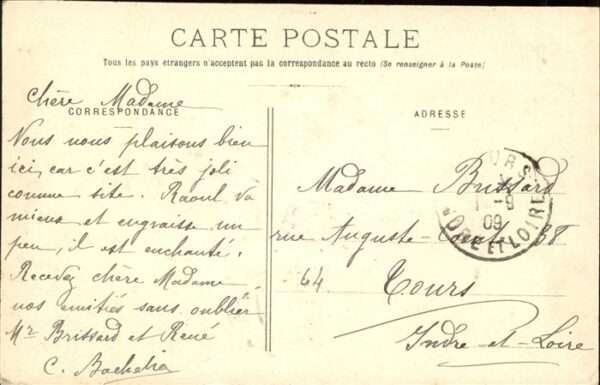 CARTE POSTALE
Tous les pays étrangers n'acceptent pas la correspondance au recto (Se renseigner à la Poste)
Chère Madame
CORRESPONDANCE
Nous nous plaisons bien
ici, car c'est très joli
comme site. Raoul va
mieux et engraisse un
peu, il est enchanté.
Recevez chère Madame
nos amitiés sans oublier
Mr Brissard et René
C.
ADRESSE
Madame Brissard
rue Auguste- 68
64
Tours
Indre-et-Loire
TOURS
09
INDRE ET LOIRE